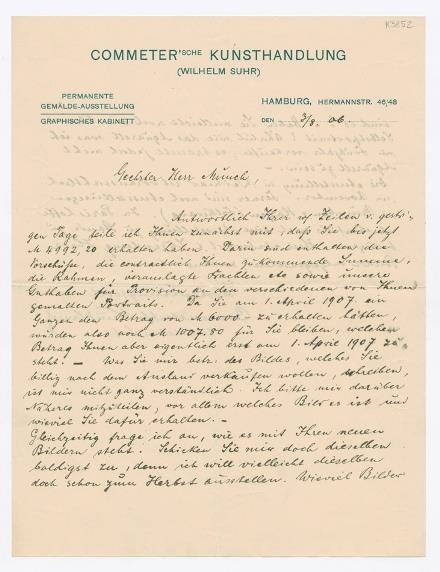 K3852
COMMETER'SCHE KUNSTHANDLUNG
(WILHELM SUHR)
PERMANENTE
GEMÄLDE-AUSSTELLUNG
GRAPHISCHES KABINETT
HAMBURG, HERMANNSTR. 46/48
DEN 3/8. 06.
Geehrter Herr Munch,
Antwortlich Ihrer Zeilen v. gestri-
gen Tage teile ich Ihnen zunächst mit, daß Sie bis jetzt
M 4992,20 erhalten haben. Darin sind enthalten die
Vorschüsse, die contractlich Ihnen zukommende Summe,
die Rahmen, verauslagte Frachten etc sowie unsere
Guthaben für Provision an den verschiedenen von Ihnen
gemalten Portraits. Da Sie am 1. April 1907. im
Ganzen den Betrag von M 6000.- zu erhalten hätten,
würden also noch M 1007.80 für Sie bleiben, welcher
Betrag Ihnen aber eigentlich erst am 1. April 1907 zu-
steht. - Was Sie mir betr. des Bildes, welches Sie
billig nach dem Ausland verkaufen wollen, schreiben,
ist mir nicht ganz verständlich. Ich bitte mir darüber
Näheres mitzuteilen, vor allem welches Bild es ist und
wieviel Sie dafür erhalten. -
Gleichzeitig frage ich an, wie es mit Ihren neuen
Bildern steht. Schicken Sie mir doch dieselben
baldigst zu, denn ich will vielleicht dieselben
doch schon zum Herbst ausstellen. Wieviel Bilder